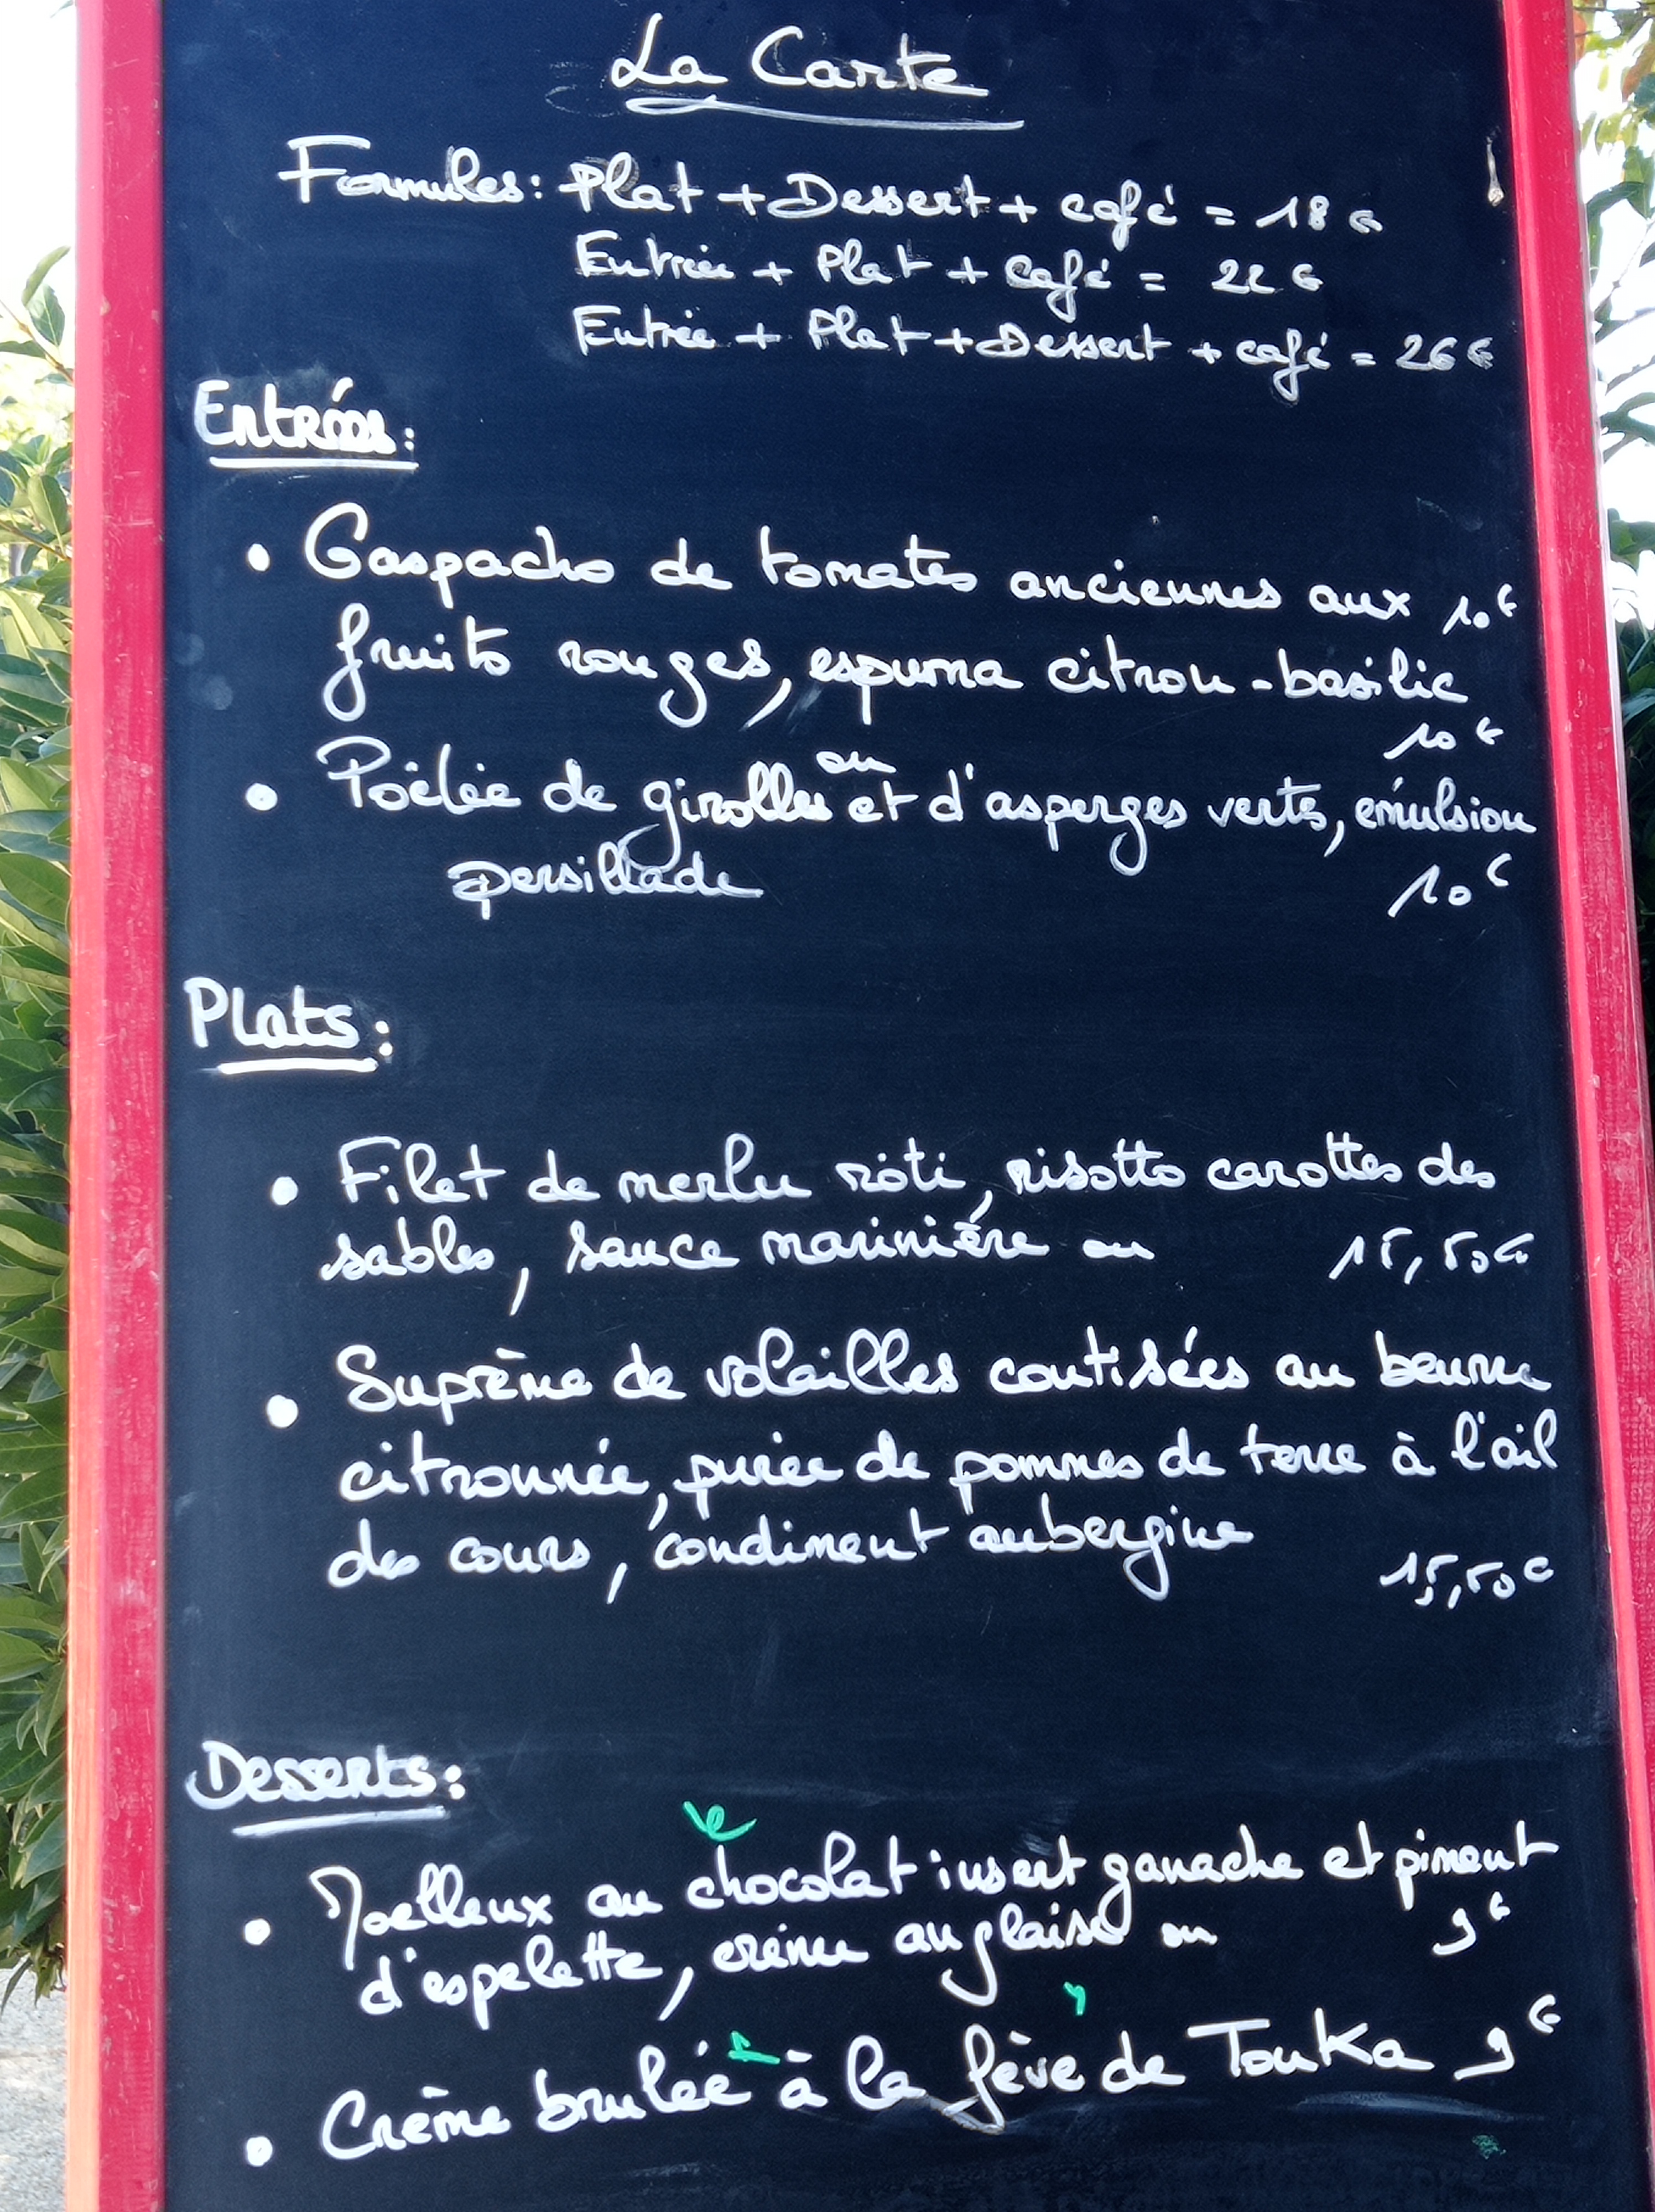 La Carte
Formules: Plat + Dessert + café = 18 €
Entrée + Plat + Café = 22 €
Entrée + Plat + Dessert + café = 26 €
Entrées:
• Gaspacho de tomates anciennes aux 10 €
fruits rouges, espuma citron-basilic
10 €
ou
• Poêlée de girolles et d'asperges verts, émulsion
persillade 10 €
Plats:
• Filet de merlu rôti, risotto carottes des
sables, sauce marinière ou 15,50 €
• Suprême de volailles coutisées au beurre
citronnée, purée de pommes de terre à l'ail
des cours, condiment aubergine
15,50 €
Desserts:
• Moelleux au chocolat insert ganache et piment
d'espelette, crème anglaise ou 9 €
• Crème brulée à la fève de Tonka 9 €